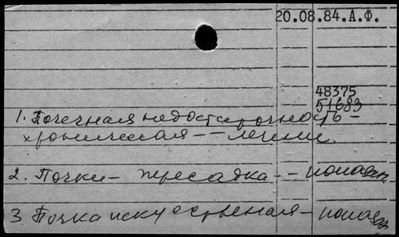 20.08.84.А.Ф.
48375
51683
1. Почечная недостаточность -
хроническая -- лечение.
2. Почки - пересадка --
3. Почка искусственная -